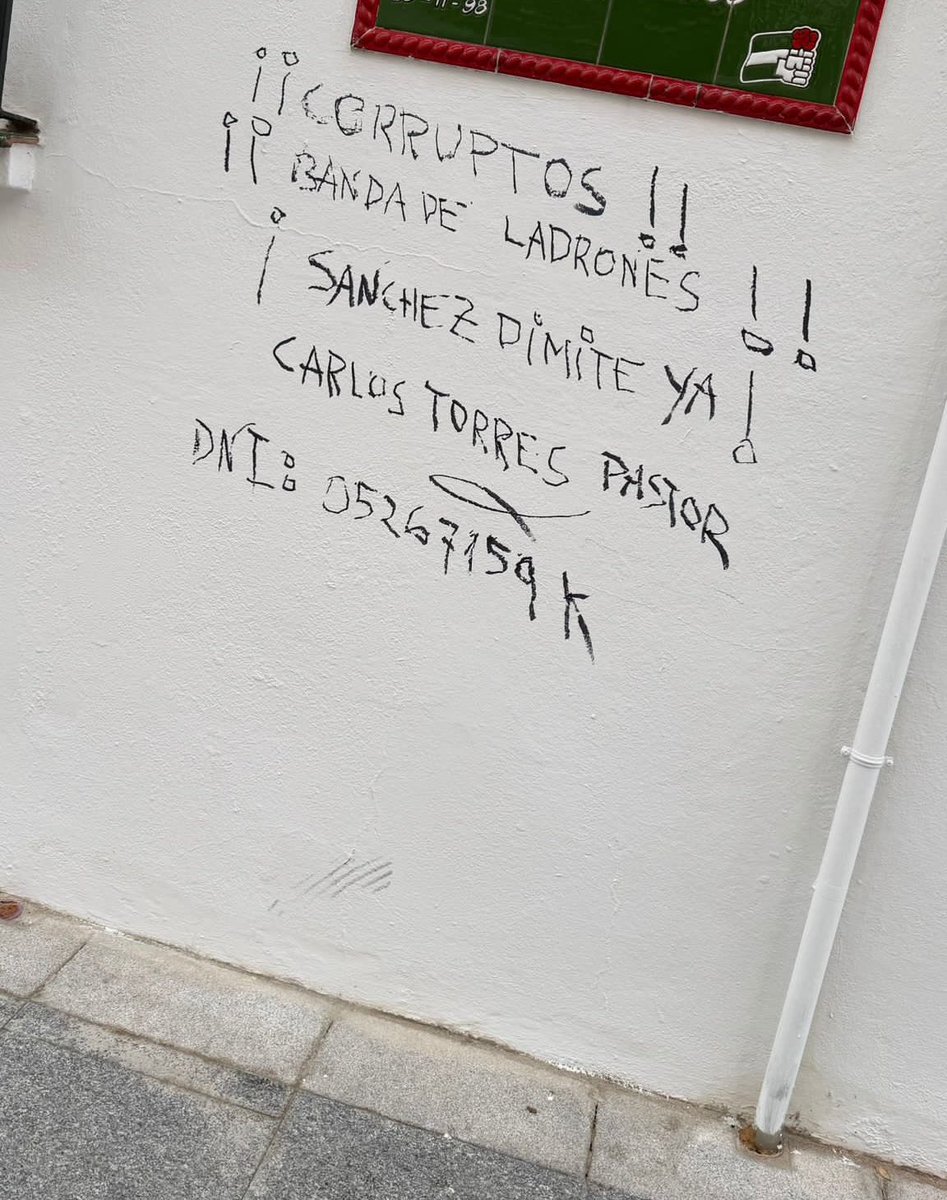 -11-98
¡¡CORRUPTOS!!
¡¡BANDA DE LADRONES!!
¡SANCHEZ DIMITE YA!
CARLOS TORRES PASTOR
DNI: 05267159K